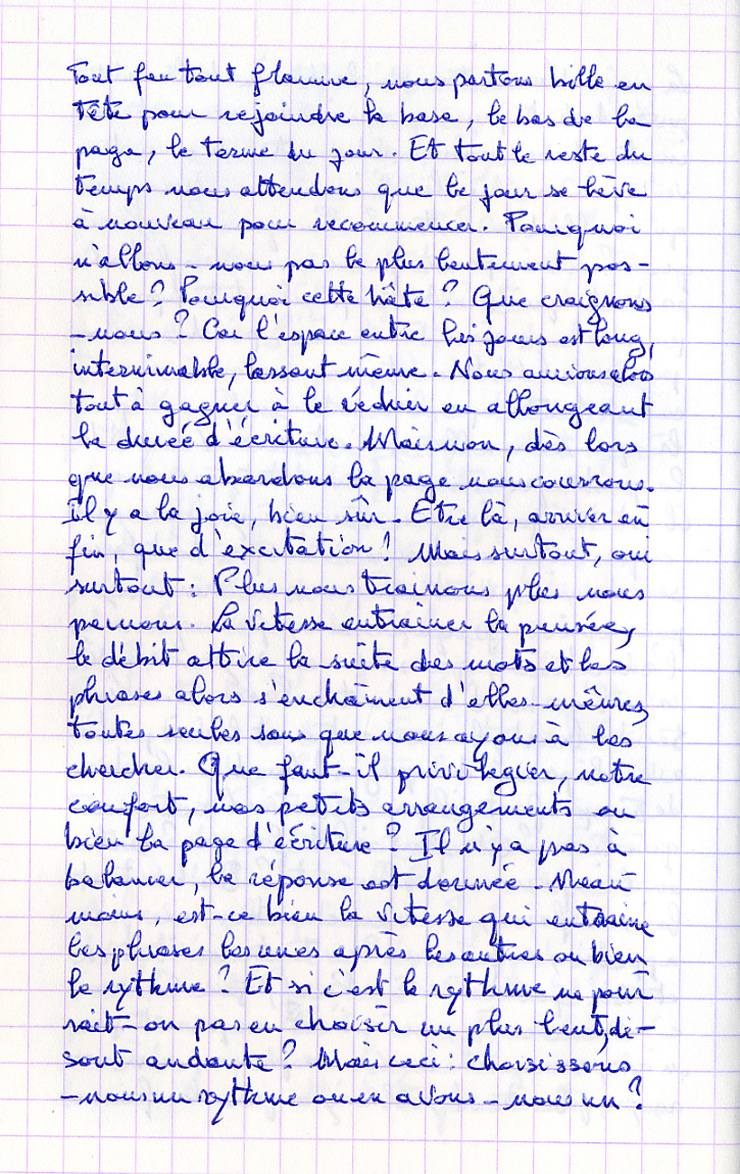 Tout feu tout flamme, nous partons bille en
tête pour rejoindre la base, le bas de la
page, le terme du jour. Et tout le reste du
temps nous attendons que le jour se lève
à nouveau pour recommencer. Pourquoi
n'allons-nous pas le plus lentement pos-
sible? Pourquoi cette hâte? Que craignons
-nous? Car l'espace entre les jours est long,
interminable, lassant même. Nous aurions alors
tout à gagner à le réduire en allongeant
la durée d'écriture. Mais non, dès lors
que nous abordons la page nous courrons.
Il y a la joie, bien sûr. Etre là, arriver en
fin, que d'excitation! Mais surtout, oui
surtout: Plus nous trainons plus nous
peinons. La vitesse entrainer la pensée,
le débit attire la suite des mots et les
phrases alors s'enchâment d'elles-mêmes,
toutes seules sans que nous ayons à les
chercher. Que faut-il privilégier, notre
confort, nos petits arrangements ou
bien la page d'écriture? Il n'y a pas à
balancer, la réponse est donnée. Néan
moins, est-ce bien la vitesse qui entraine
les phrases les unes après les autres ou bien
le rythme? Et si c'est le rythme ne pour
rait-on pas en choisir un plus lent, di-
sont andante? Mais ceci: choisissons
-nous un rythme ou en avons-nous un?